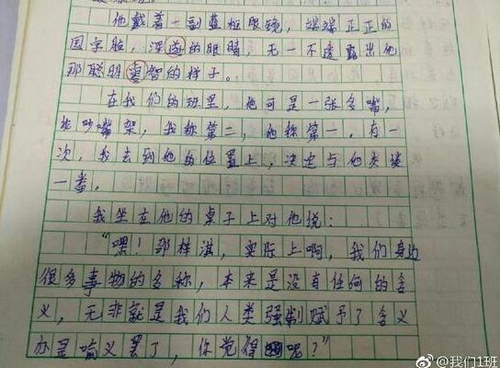 他戴着一副蓝框眼镜，端端正正的
国字脸，深邃的眼睛，无一不透露出他
那聪明睿智的样子。
在我们的班里，他可是一张名嘴，
吵嘴架，我称第二，他称第一，有一
次，我去到他的位置上，决定与他来谈
一番。
我坐在他的桌子上对他说：
“嘿！那样淇，实际上啊，我们身边
很多事物的名称，本来是没有任何的含
义，无非就是我们人类强制赋予了含义
亦是喻义罢了，你觉得呢？”
@我们1班